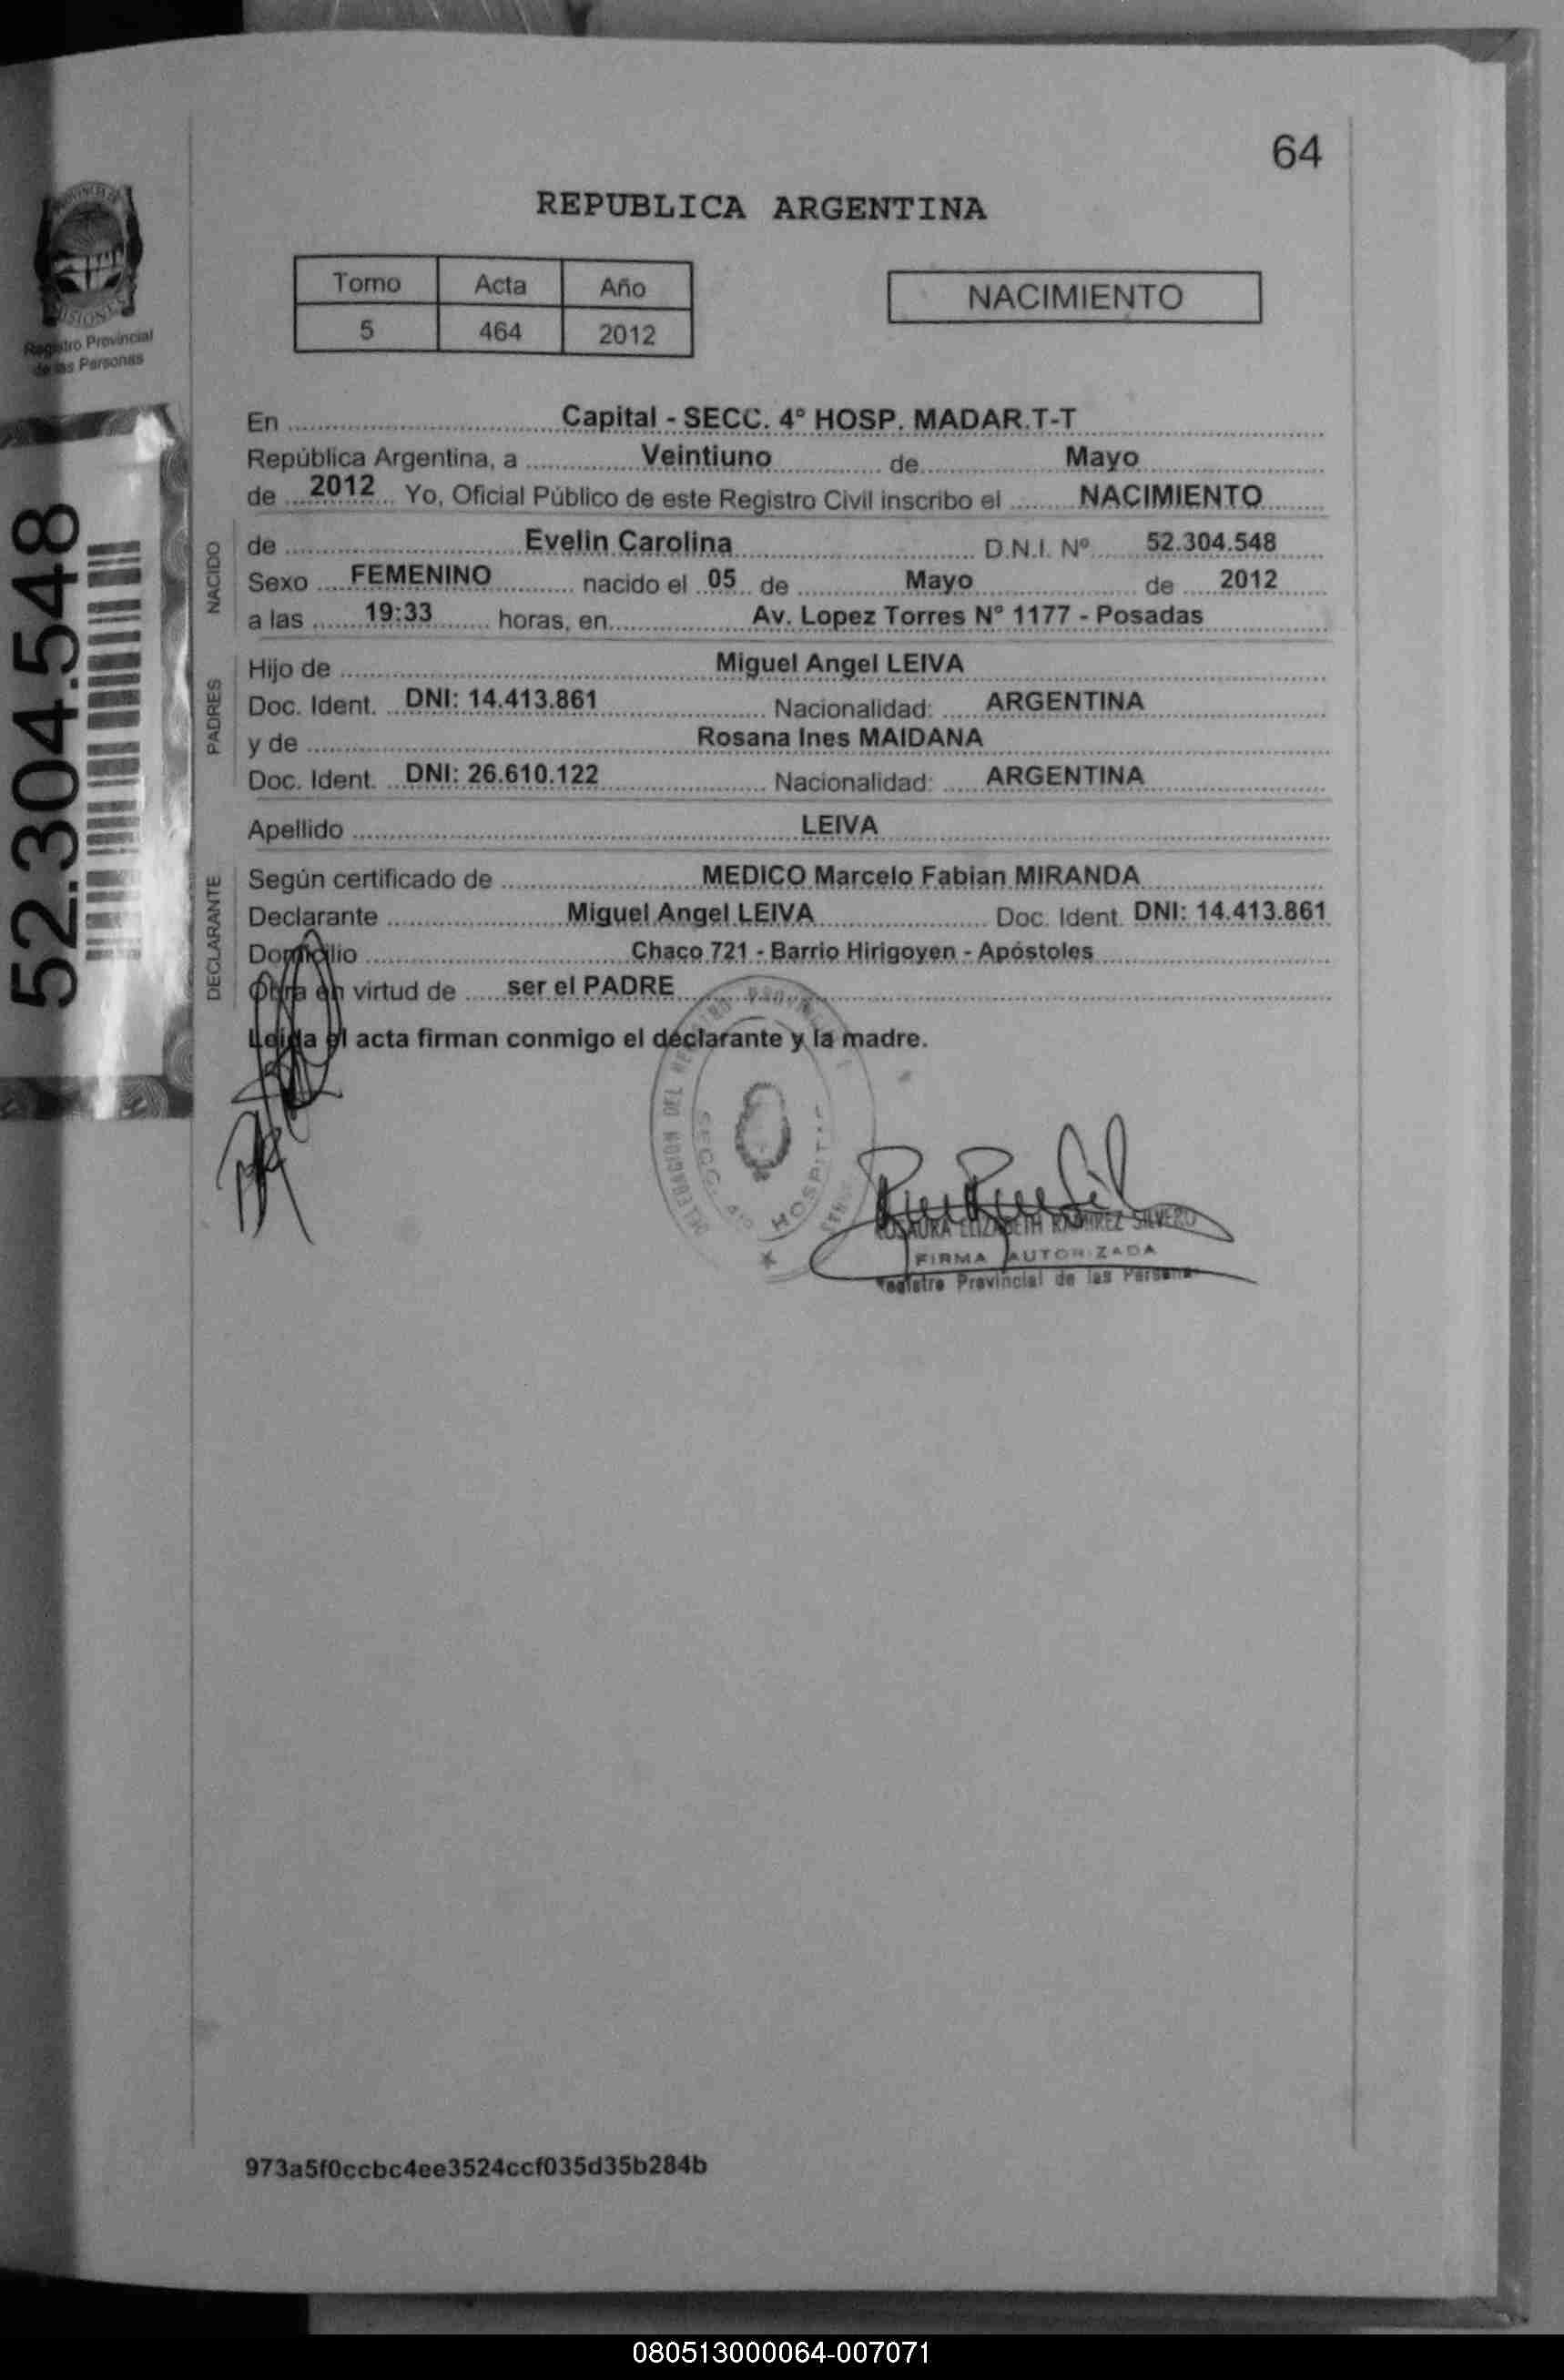 64
PROVINCIA DE
MISIONES
Registro Provincial
de las Personas
REPUBLICA ARGENTINA
Tomo Acta Año
5 464 2012
NACIMIENTO
52.304.548
En Capital - SECC. 4° HOSP. MADAR.T-T
República Argentina, a Veintiuno de Mayo
de 2012 Yo, Oficial Público de este Registro Civil inscribo el NACIMIENTO
NACIDO
de Evelin Carolina D.N.I. Nº 52.304.548
Sexo FEMENINO nacido el 05 de Mayo de 2012
a las 19:33 horas, en Av. Lopez Torres N° 1177 - Posadas
PADRES
Hijo de Miguel Angel LEIVA
Doc. Ident. DNI: 14.413.861 Nacionalidad: ARGENTINA
y de Rosana Ines MAIDANA
Doc. Ident. DNI: 26.610.122 Nacionalidad: ARGENTINA
Apellido LEIVA
DECLARANTE
Según certificado de MEDICO Marcelo Fabian MIRANDA
Declarante Miguel Angel LEIVA Doc. Ident. DNI: 14.413.861
Domicilio Chaco 721 - Barrio Hirigoyen - Apóstoles
Obra en virtud de ser el PADRE
Leida el acta firman conmigo el declarante y la madre.
DELEGACION DEL REGISTRO
SECC. 4° HOSPITAL
ROSAURA ELIZABETH RAMIREZ SILVERO
FIRMA AUTORIZADA
Registro Provincial de las Personas
973a5f0ccbc4ee3524ccf035d35b284b
080513000064-007071